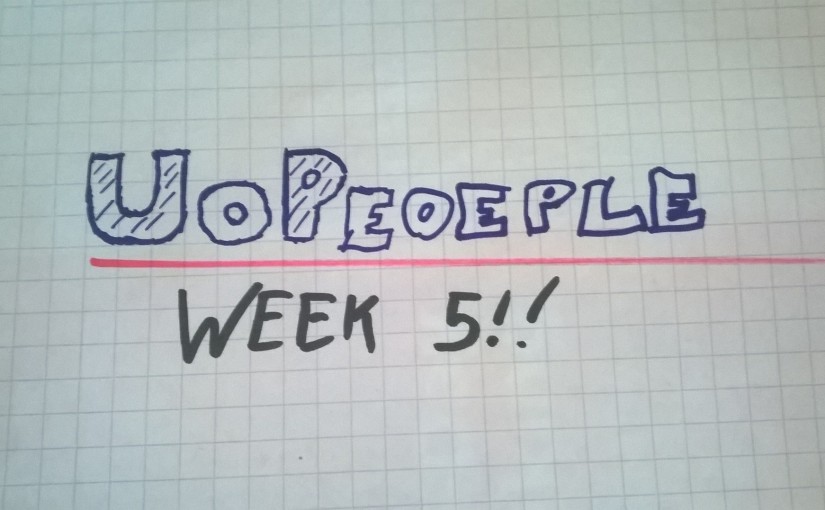 UoPeoeple
WEEK 5!!